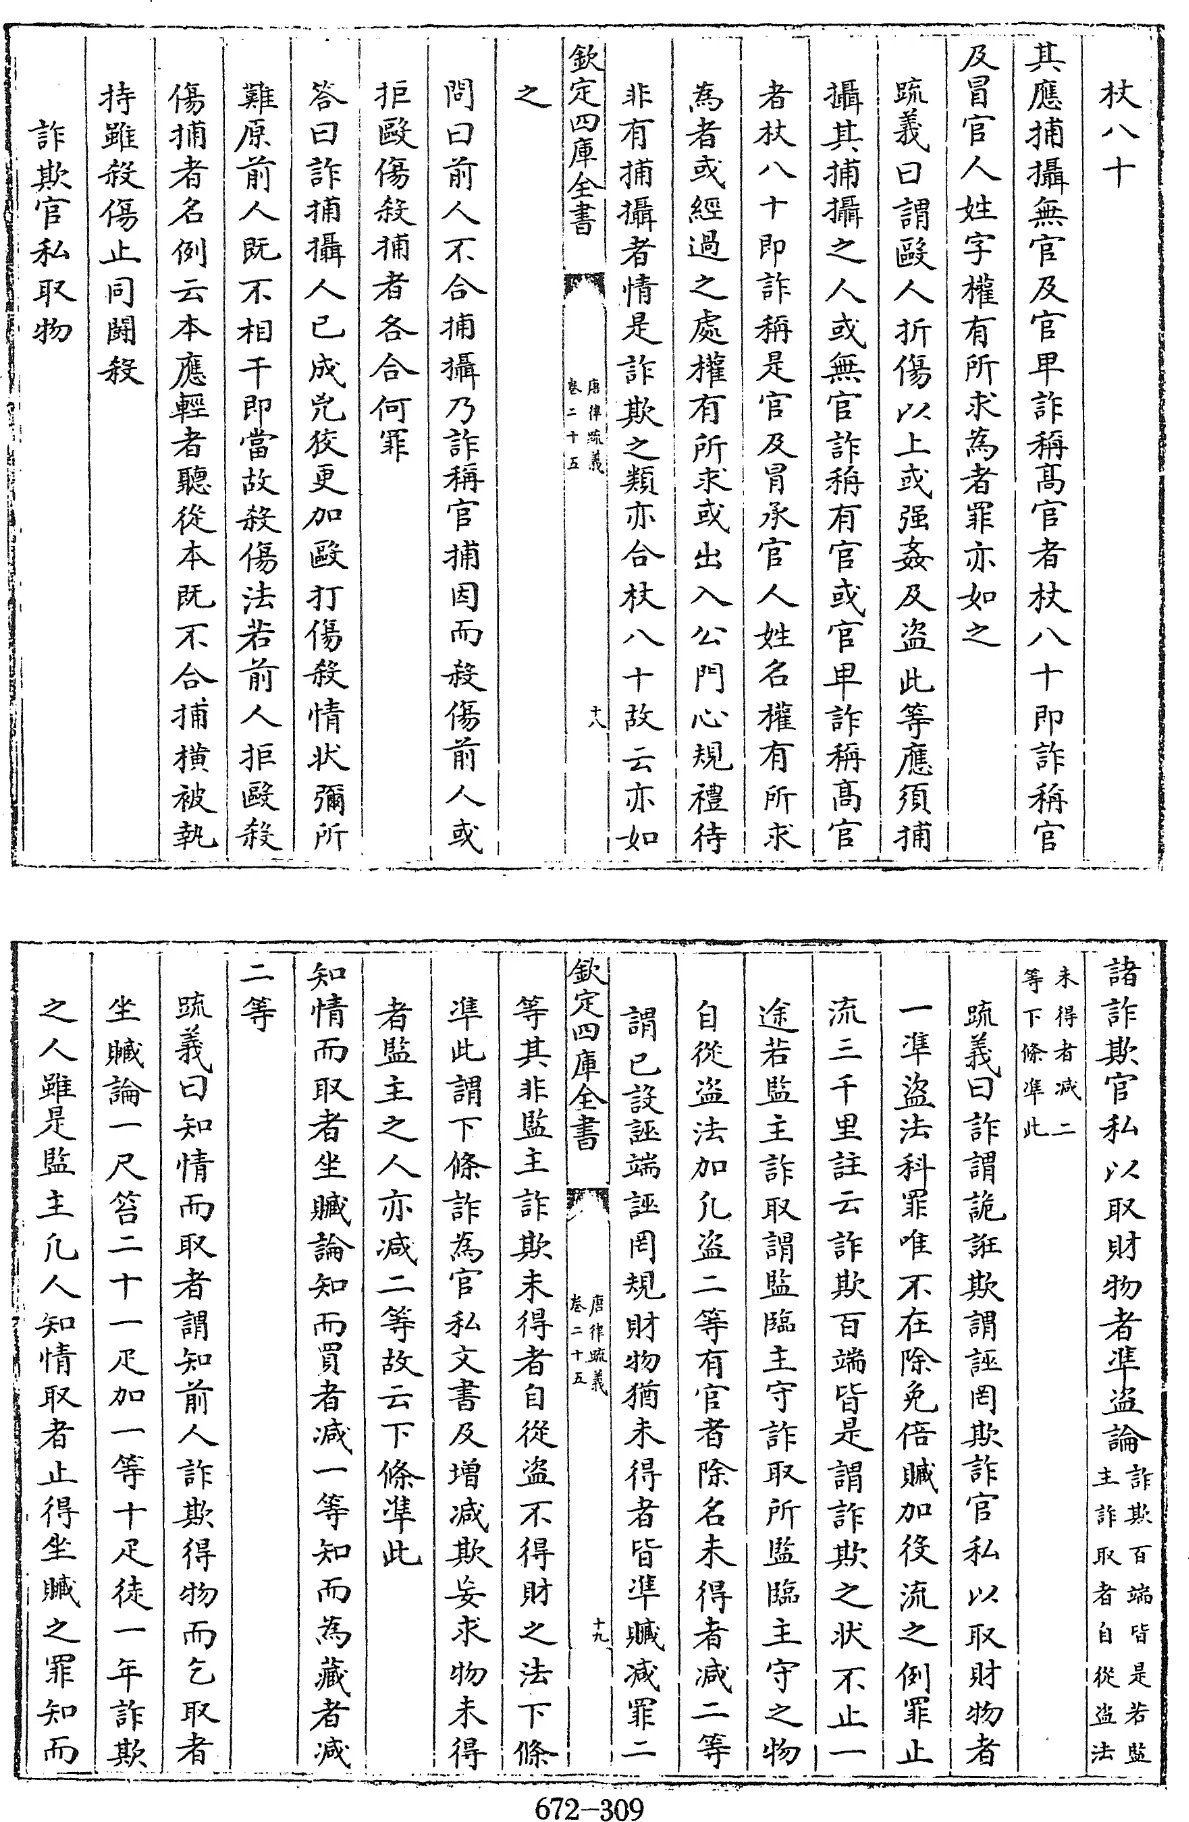 杖八十
其應捕攝無官及官卑詐稱髙官者杖八十即詐稱官
及冒官人姓字權有所求為者罪亦如之
疏義曰謂毆人折傷以上或强姦及盗此等應須捕
攝其捕攝之人或無官詐稱有官或官卑詐稱髙官
者杖八十即詐稱是官及冒承官人姓名權有所求
為者或經過之處權有所求或出入公門心規禮待
非有捕攝者情是詐欺之類亦合杖八十故云亦如
欽定四庫全書
唐律疏義
卷二十五
十八
之
問曰前人不合捕攝乃詐稱官捕因而殺傷前人或
拒毆傷殺捕者各合何罪
答曰詐捕攝人已成兇狡更加毆打傷殺情狀彌所
難原前人既不相干即當故殺傷法若前人拒毆殺
傷捕者名例云本應輕者聽從本既不合捕橫被執
持雖殺傷止同鬬殺
詐欺官私取物
諸詐欺官私以取財物者凖盗論詐欺百端皆是若監
主詐取者自從盗法
未得者减二
等下條凖此
疏義曰詐謂詭誑欺謂誣罔欺詐官私以取財物者
一凖盗法科罪唯不在除免倍贓加役流之例罪止
流三千里註云詐欺百端皆是謂詐欺之狀不止一
途若監主詐取謂監臨主守詐取所監臨主守之物
自從盗法加凡盗二等有官者除名未得者减二等
謂已設誣端誣罔規財物猶未得者皆凖贓减罪二
欽定四庫全書
唐律疏義
卷二十五
十九
等其非監主詐欺未得者自從盗不得財之法下條
凖此謂下條詐為官私文書及增减欺妄求物未得
者監主之人亦减二等故云下條凖此
知情而取者坐贓論知而買者减一等知而為藏者减
二等
疏義曰知情而取者謂知前人詐欺得物而乞取者
坐贓論一尺笞二十一疋加一等十疋徒一年詐欺
之人雖是監主凡人知情取者止得坐贓之罪知而
672-309